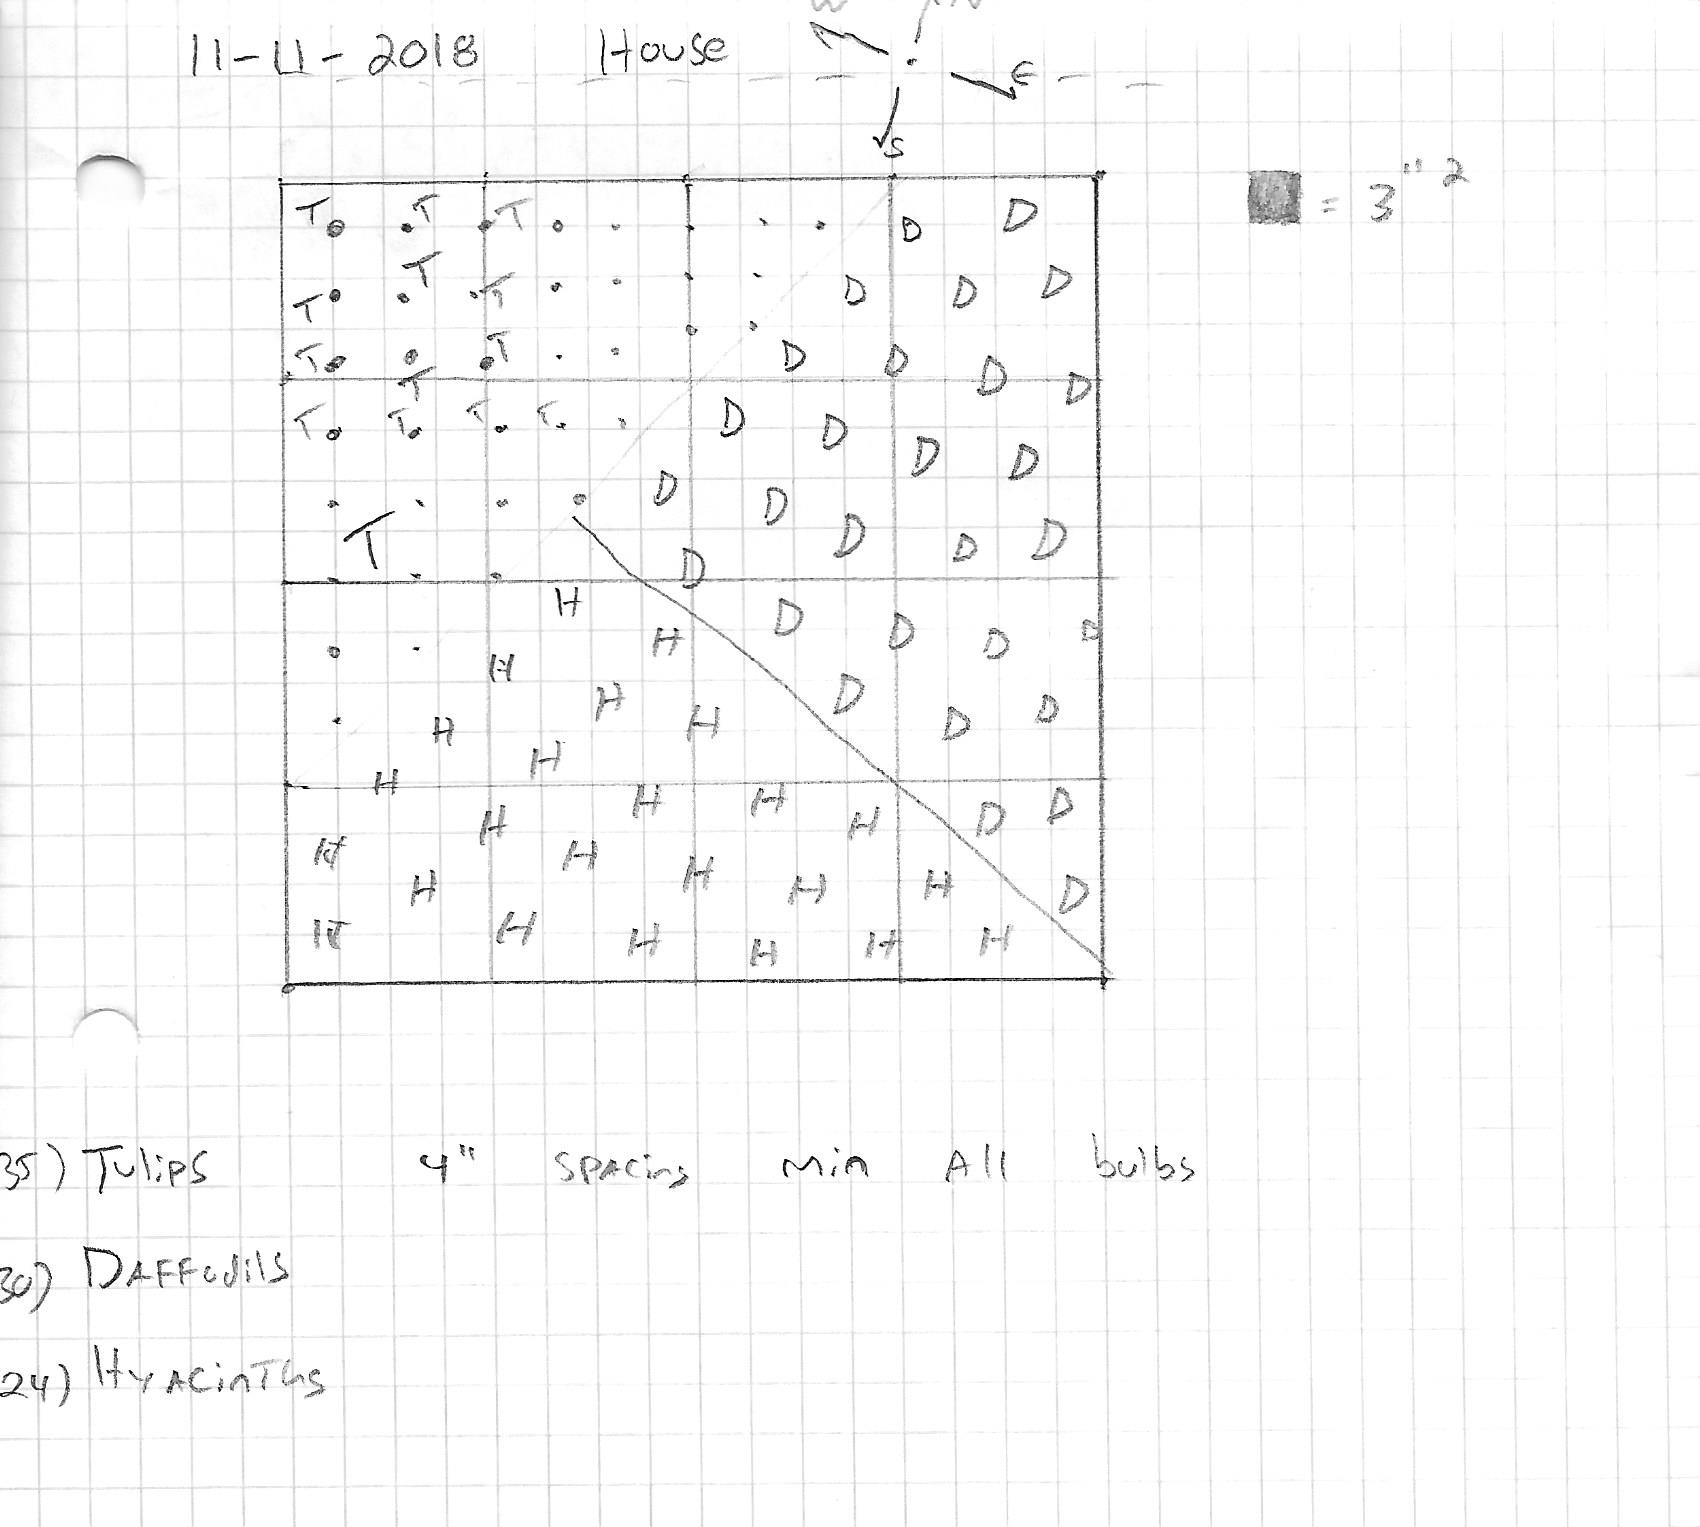 11-11-2018 House
E
S
= 3"2
T T T D D
T
T T D D D
T T D D D D
T
T T T T D D D D
D D
T D D D
D
H D D D D
H H
H H D D D
H H
H H H D D
H H H
H H H
H H H H D
H H H H H H
35) Tulips 4" spacing min All bulbs
30) Daffodils
24) Hyacinths